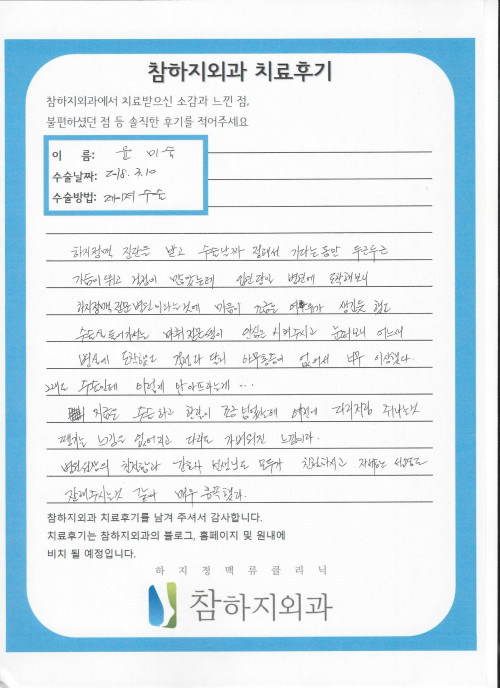 참하지외과 치료후기
참하지외과에서 치료받으신 소감과 느낀 점,
불편하셨던 점 등 솔직한 후기를 적어주세요
이 름: 윤 미숙
수술날짜: 2018. 3.10
수술방법: 레이져 수술
하지정맥 진단을 받고 수술날짜 정해서 기다리는동안 두근두근
가슴이 뛰고 걱정이 많았는데 입원당일 병원에 도착해보니
하지정맥 전문병원이라는것에 마음이 조금은 여유가 생긴듯 했고
수술실 들어가서는 마취 안심 시켜주시고 눈떠보니 어느새
병실에 도착했고 걱정과 달리 아무통증이 없어서 너무 이상했다.
그래도 수술인데 이렇게 안아프다는게 ...
지금은 수술하고 한달이 조금 넘었는데 예전에 다리저림 쥐나는것
느낌은 없어지고 다리도 가벼워진 느낌이다.
병원 친절함과 간호사 선생님들 모두가 친절하시고 자세한 설명도
잘해주시는것 같아 매우 만족했다.
참하지외과 치료후기를 남겨 주셔서 감사합니다.
치료후기는 참하지외과의 블로그, 홈페이지 및 원내에
비치 될 예정입니다.
하지정맥류클리닉
참하지외과